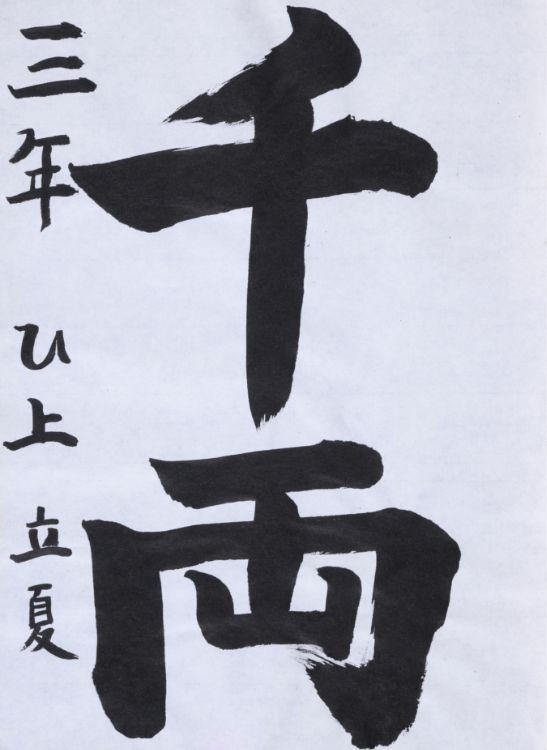 千両
三年 ひ上 立夏